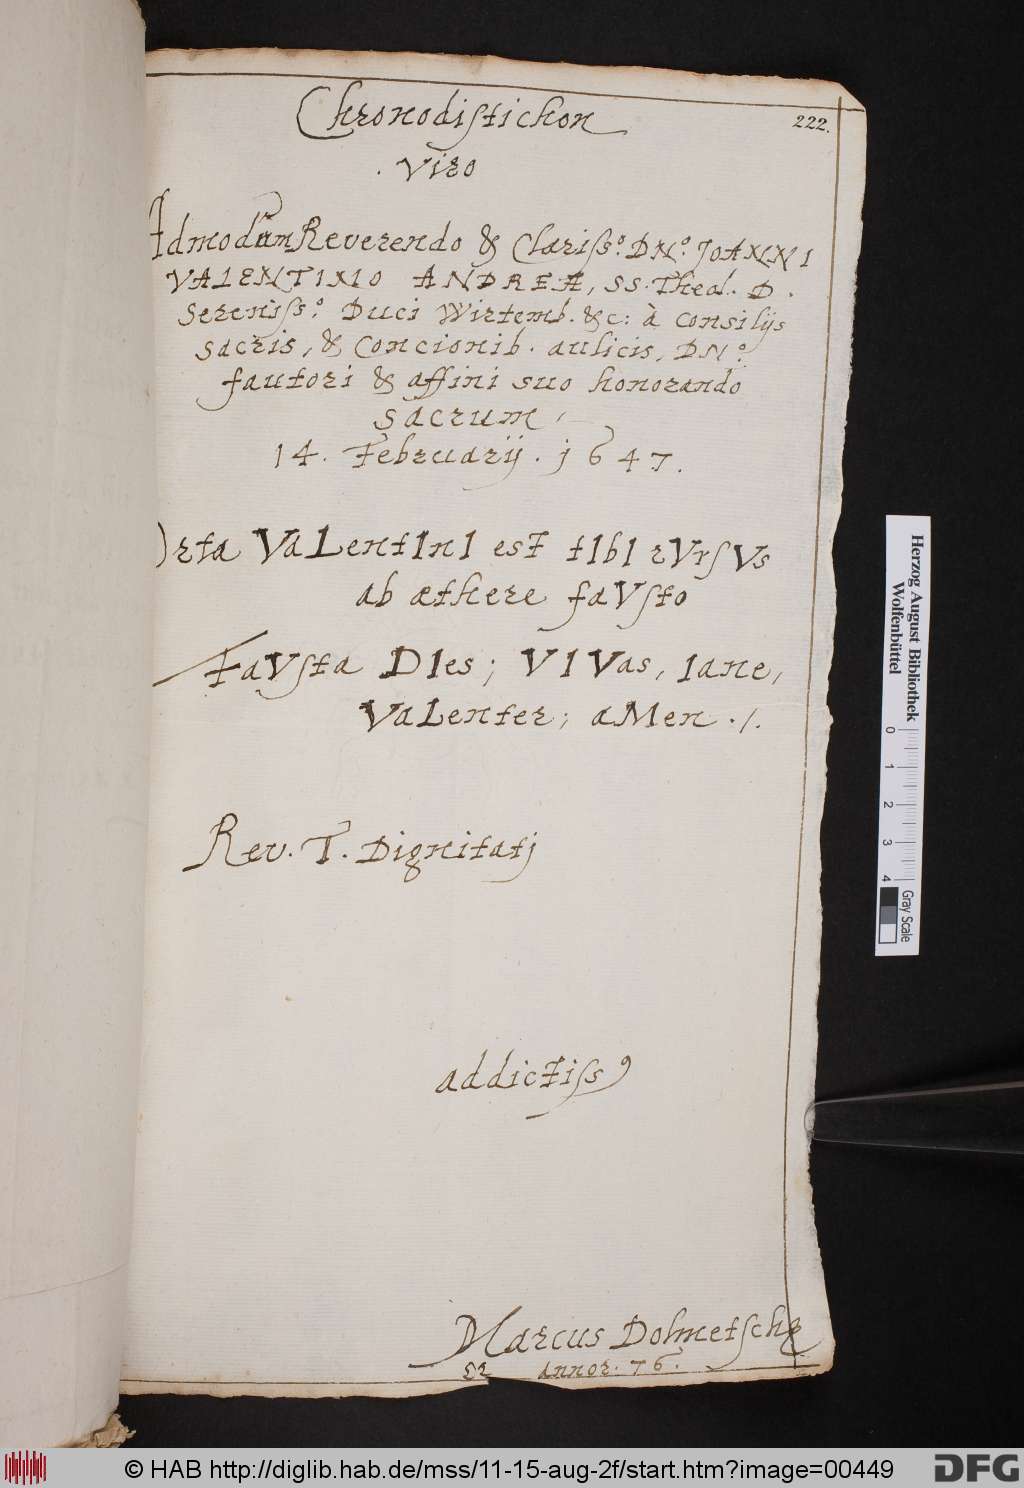 222.
Chronodistichon
Viro
Admodùm Reverendo & Clariss.º DN.º JOANNI
VALENTINO ANDREÆ, SS. Theol. D.
Sereniss.º Duci Wirtemb. &c: à consilijs
sacris, & Concionib. aulicis, DN.º
fautori & affini suo honorando
sacrum,
14. Februarij. 1647.
Orta VaLentInI est tIbI rVrsVs
ab æthere faVsto
FaVsta DIes; VIVas, Iane,
VaLenter; aMen ./.
Rev. T. Dignitatj
addictiss9
Marcus Dolmetsch
annor. 76.
Herzog August Bibliothek
Wolfenbüttel
0 1 2 3 4
Gray Scale
© HAB http://diglib.hab.de/mss/11-15-aug-2f/start.htm?image=00449
DFG